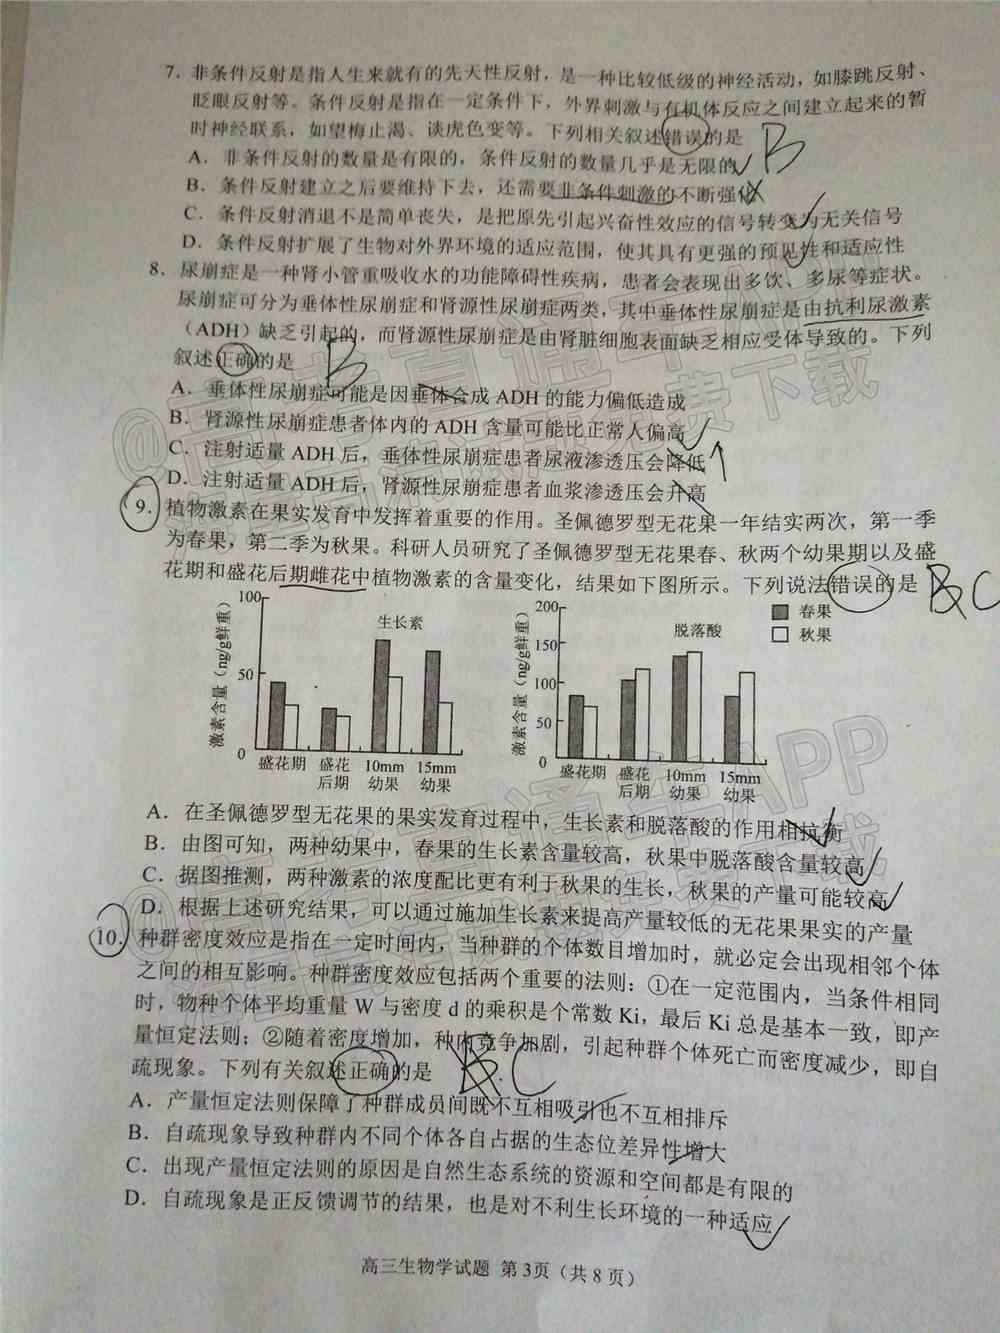 7．非条件反射是指人生来就有的先天性反射，是一种比较低级的神经活动，如膝跳反射、
眨眼反射等。条件反射是指在一定条件下，外界刺激与有机体反应之间建立起来的暂
时神经联系，如望梅止渴、谈虎色变等。下列相关叙述错误的是 B
A．非条件反射的数量是有限的，条件反射的数量几乎是无限的
B．条件反射建立之后要维持下去，还需要非条件刺激的不断强化
C．条件反射消退不是简单丧失，是把原先引起兴奋性效应的信号转变为无关信号
D．条件反射扩展了生物对外界环境的适应范围，使其具有更强的预见性和适应性
8．尿崩症是一种肾小管重吸收水的功能障碍性疾病，患者会表现出多饮、多尿等症状。
尿崩症可分为垂体性尿崩症和肾源性尿崩症两类，其中垂体性尿崩症是由抗利尿激素
（ADH）缺乏引起的，而肾源性尿崩症是由肾脏细胞表面缺乏相应受体导致的。下列
叙述正确的是 B
A．垂体性尿崩症可能是因垂体合成 ADH 的能力偏低造成
B．肾源性尿崩症患者体内的 ADH 含量可能比正常人偏高
C．注射适量 ADH 后，垂体性尿崩症患者尿液渗透压会降低↑
D．注射适量 ADH 后，肾源性尿崩症患者血浆渗透压会升高
9．植物激素在果实发育中发挥着重要的作用。圣佩德罗型无花果一年结实两次，第一季
为春果，第二季为秋果。科研人员研究了圣佩德罗型无花果春、秋两个幼果期以及盛
花期和盛花后期雌花中植物激素的含量变化，结果如下图所示。下列说法错误的是 B C
激素含量（ng/g鲜重）
100
50
0
生长素
盛花期 盛花后期 10mm幼果 15mm幼果
激素含量（ng/g鲜重）
200
150
100
50
0
脱落酸
盛花期 盛花后期 10mm幼果 15mm幼果
春果
秋果
A．在圣佩德罗型无花果的果实发育过程中，生长素和脱落酸的作用相抗衡
B．由图可知，两种幼果中，春果的生长素含量较高，秋果中脱落酸含量较高
C．据图推测，两种激素的浓度配比更有利于秋果的生长，秋果的产量可能较高
D．根据上述研究结果，可以通过施加生长素来提高产量较低的无花果果实的产量
10．种群密度效应是指在一定时间内，当种群的个体数目增加时，就必定会出现相邻个体
之间的相互影响。种群密度效应包括两个重要的法则：①在一定范围内，当条件相同
时，物种个体平均重量 W 与密度 d 的乘积是个常数 Ki，最后 Ki 总是基本一致，即产
量恒定法则；②随着密度增加，种内竞争加剧，引起种群个体死亡而密度减少，即自
疏现象。下列有关叙述正确的是 B. C
A．产量恒定法则保障了种群成员间既不互相吸引也不互相排斥
B．自疏现象导致种群内不同个体各自占据的生态位差异性增大
C．出现产量恒定法则的原因是自然生态系统的资源和空间都是有限的
D．自疏现象是正反馈调节的结果，也是对不利生长环境的一种适应
高三生物学试题 第3页（共 8 页）